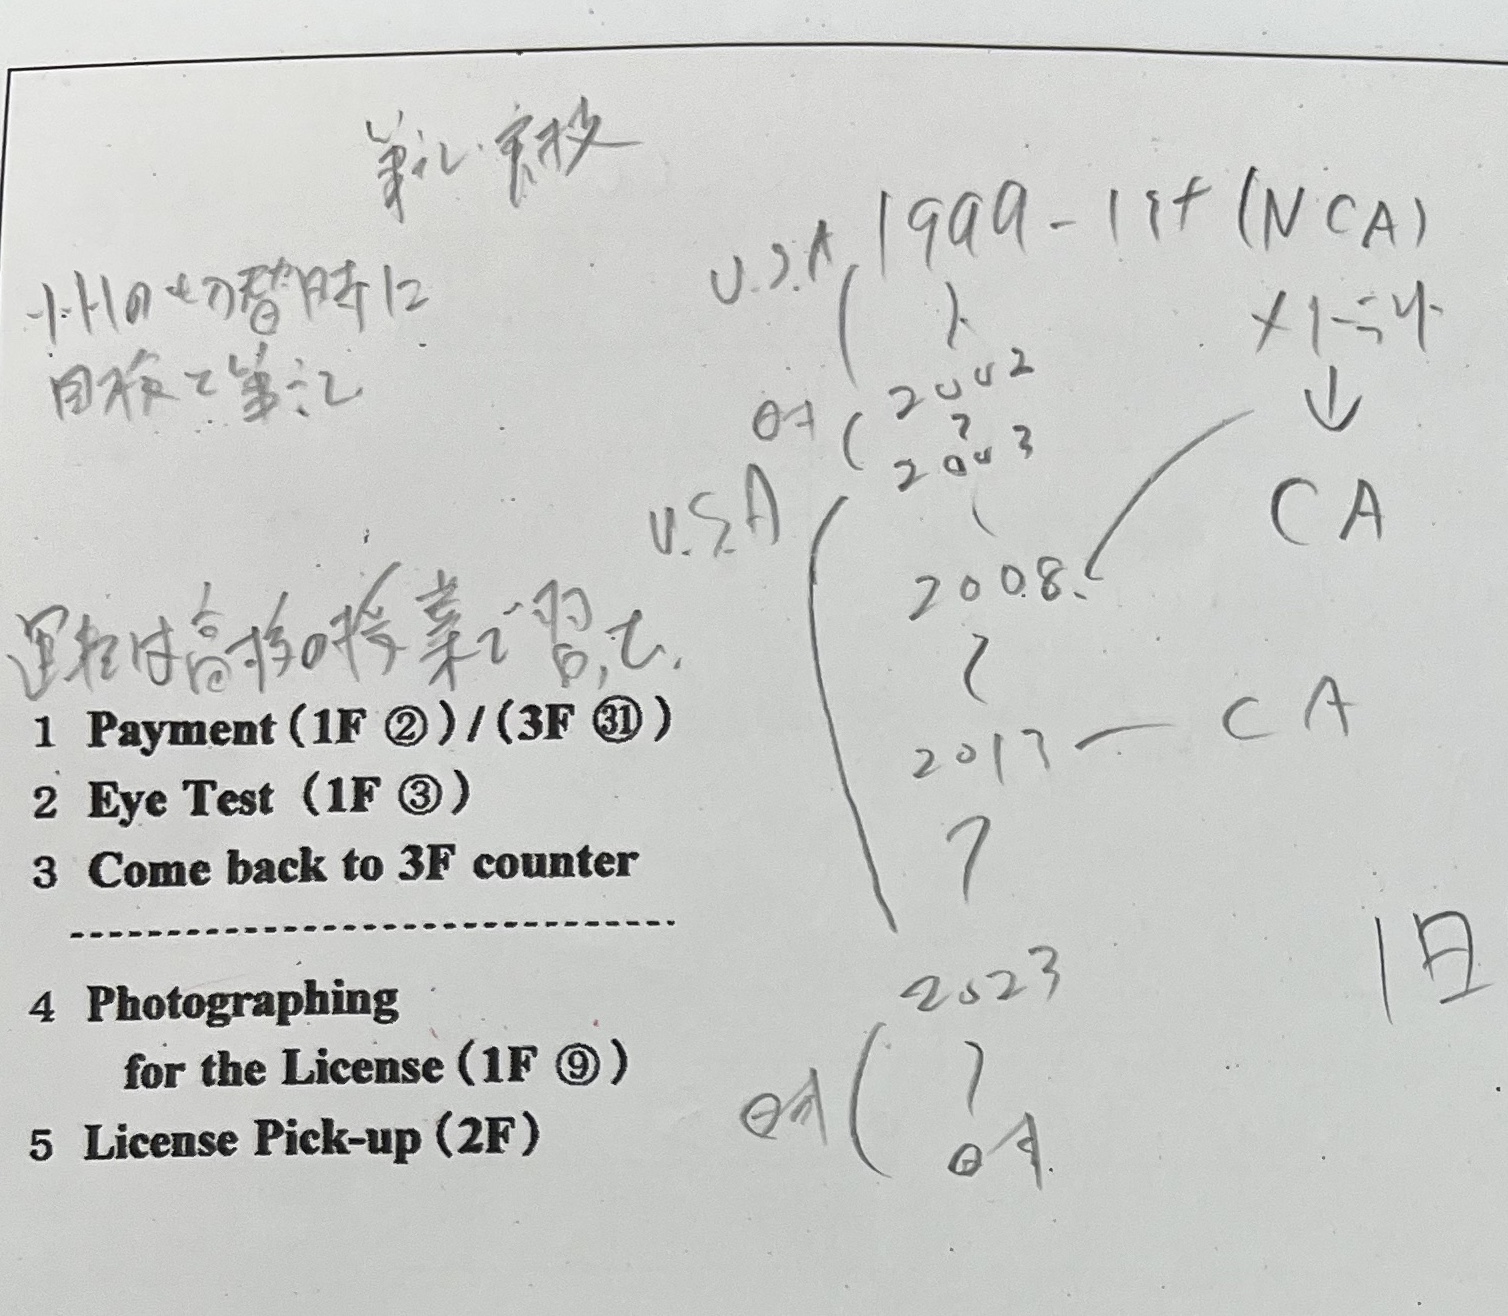 筆記・実技
州の切替時に
目検と筆記
運転は高校の授業で習った.
1 Payment (1F ②) / (3F ㉛)
2 Eye Test (1F ③)
3 Come back to 3F counter
4 Photographing
for the License (1F ⑨)
5 License Pick-up (2F)
U.S.A 1999 - 1st (NCA)
2002
日本
2003
U.S.A
↓
CA
2008.
2013 — CA
2023
日本
日本
1日